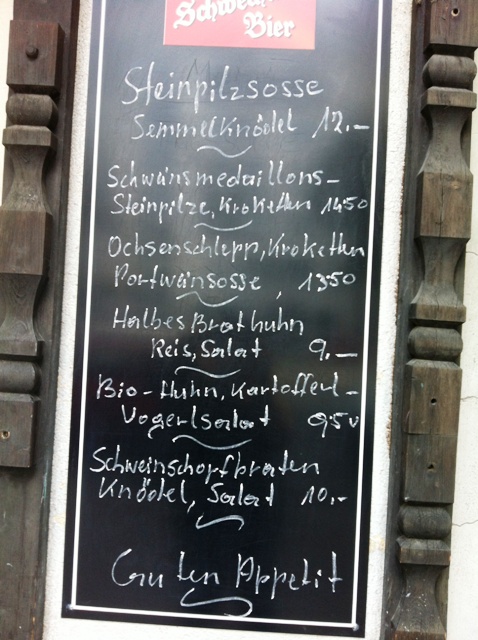 Bier
Steinpilzsosse
Semmelknödel 12.–
Schweinsmedaillons-
Steinpilze, Kroketten 1450
Ochsenschlepp, Kroketten
Portweinsosse, 1350
Halbes Brathuhn
Reis, Salat 9.–
Bio-Huhn, Kartoffel-
Vogerlsalat 950
Schweinschopfbraten
Knödel, Salat 10.-
Guten Appetit